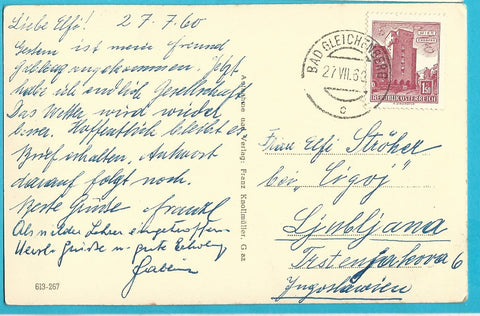 Liebe Elfi! 27.7.60
Gestern ist mein Freund
angekommen. Jetzt
habe ich endlich Gesellschaft.
Das Wetter wird wieder
besser. Hoffentlich bleibt es
Brief erhalten. Antwort
darauf folgt noch.
Beste Grüße
Als
Grüße u. gute
BAD GLEICHENBERG
27.VII.60
c
REPUBLIK ÖSTERREICH
Aufnahme und Verlag: Franz Knollmüller, Graz
Frau Elfi Ströher
bei "Cigoj"
Ljubljana
Trstenjakova 6
Jugoslawien
613-267